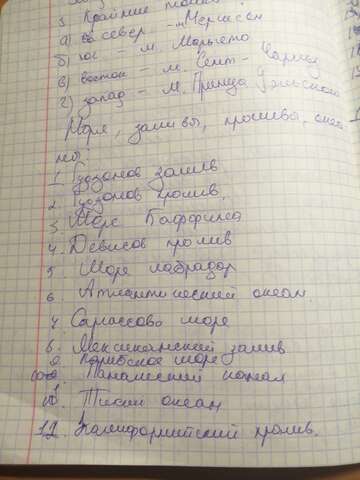 3 Крайние точки
а) север - м. Мерчисон
б) юг - м. Марьято
в) восток - м. Сент - Чарльз
г) запад - м. Принца Уэльского
Моря, заливы, проливы, океа
ны:
1 Гудзонов залив
2 Гудзонов пролив.
3. Море Баффина
4. Девисов пролив
5. Море лабрадор
6. Атлантический океан.
7. Саргассово море
8. Мексиканский залив
9. Карибское море
Панамский канал
Тихий океан
12. Калифорнийский пролив.